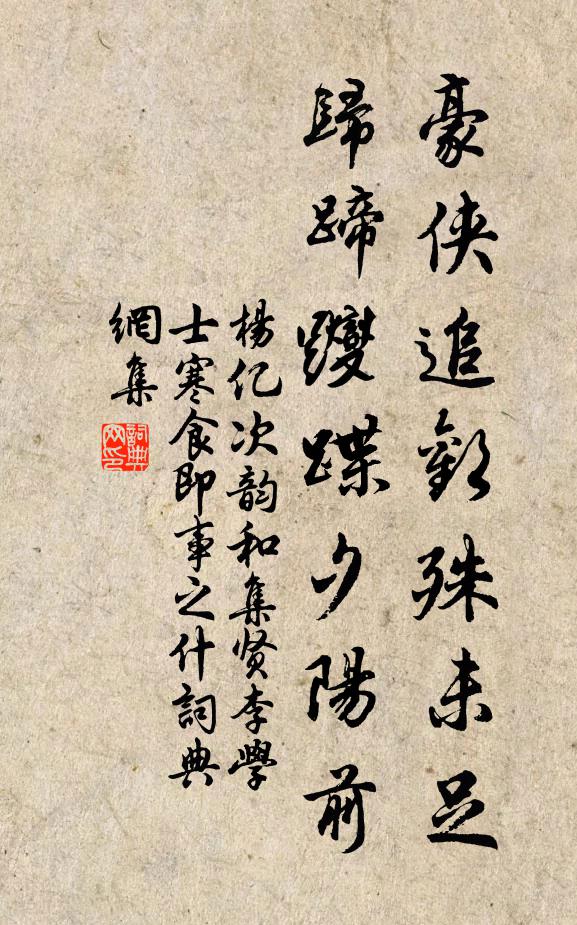 豪侠追歡殊未足
歸蹄躞蹀夕陽前
楊亿次韵和集贤李學
士寒食即事之什詞典
網集
詞典
网印